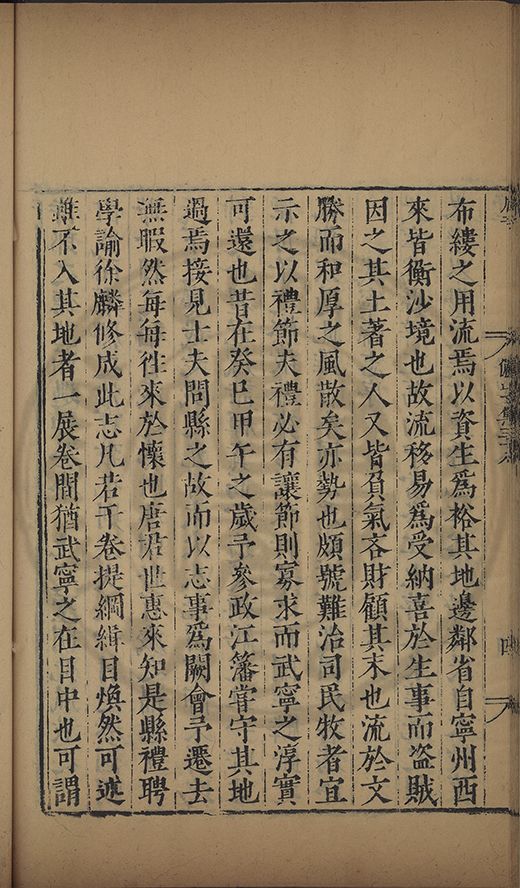 布縷之用流焉以資生為裕其地邊鄰省自寧州西
來皆衡沙境也故流移易為受納喜於生事而盜賊
因之其土著之人又皆負氣吝財顧其末也流於文
勝而和厚之風散矣亦勢也頗號難治司民牧者宜
示之以禮節夫禮必有讓節則寡求而武寧之淳實
可還也昔在癸巳甲午之歲予參政江藩嘗守其地
過焉接見士夫問縣之故而以志事為闕會予遷去
無暇然每每往來於懷也唐君世惠來知是縣禮聘
學諭徐麟修成此志凡若干卷提綱緝目煥然可述
雖不入其地者一展卷間猶武寧之在目中也可謂
四